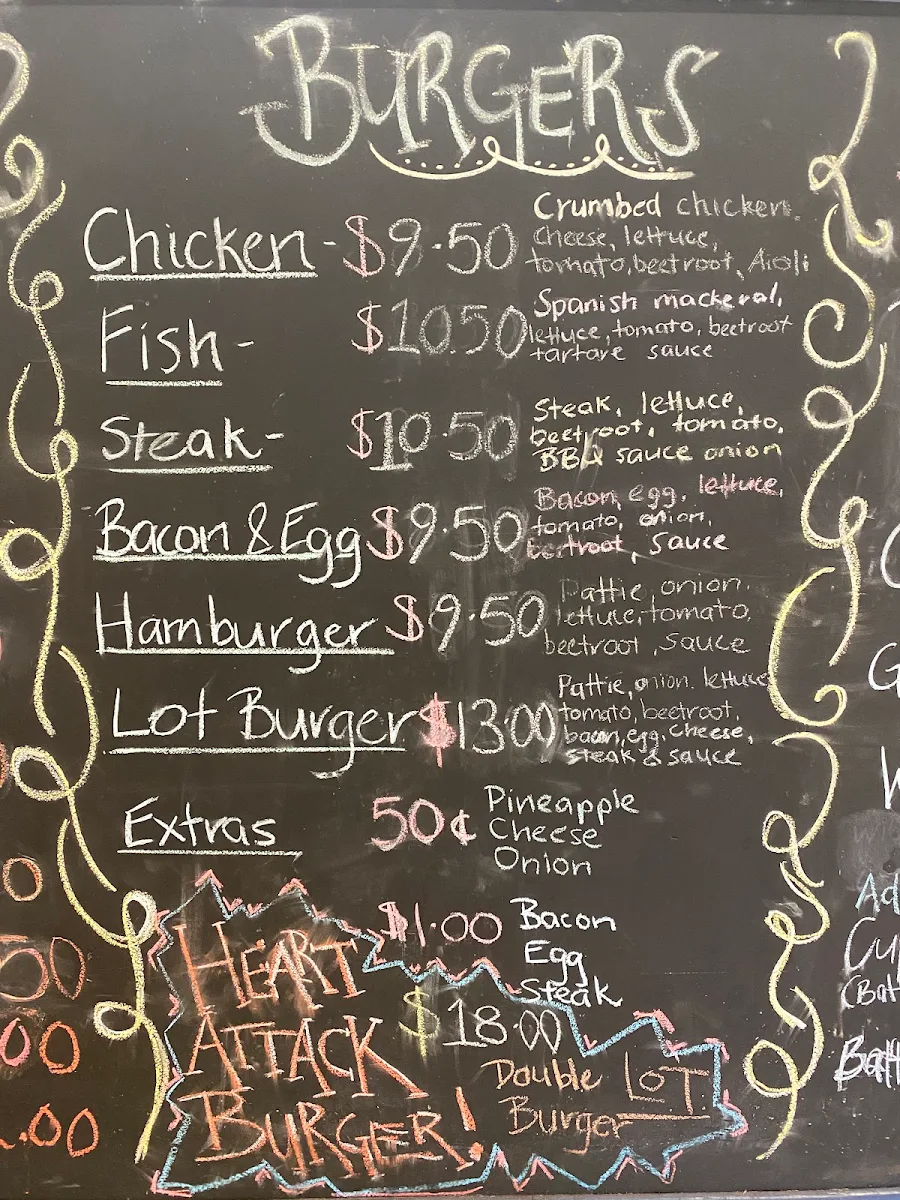 BURGERS
Chicken - $9.50 Crumbed chicken.
Cheese, lettuce,
tomato, beetroot, Aioli
Fish - $10.50 Spanish mackeral,
lettuce, tomato, beetroot
tartare sauce
Steak - $10.50 Steak, lettuce,
beetroot, tomato,
BBQ sauce onion
Bacon & Egg $9.50 Bacon, egg, lettuce,
tomato, onion,
beetroot, sauce
Hamburger $9.50 Pattie, onion,
lettuce, tomato,
beetroot, sauce
Lot Burger $13.00 Pattie, onion, lettuce
tomato, beetroot,
bacon, egg, cheese,
steak & sauce
Extras 50¢ Pineapple
Cheese
Onion
$1.00 Bacon
Egg
Steak
HEART
ATTACK
BURGER!
$18.00
Double LOT
Burger